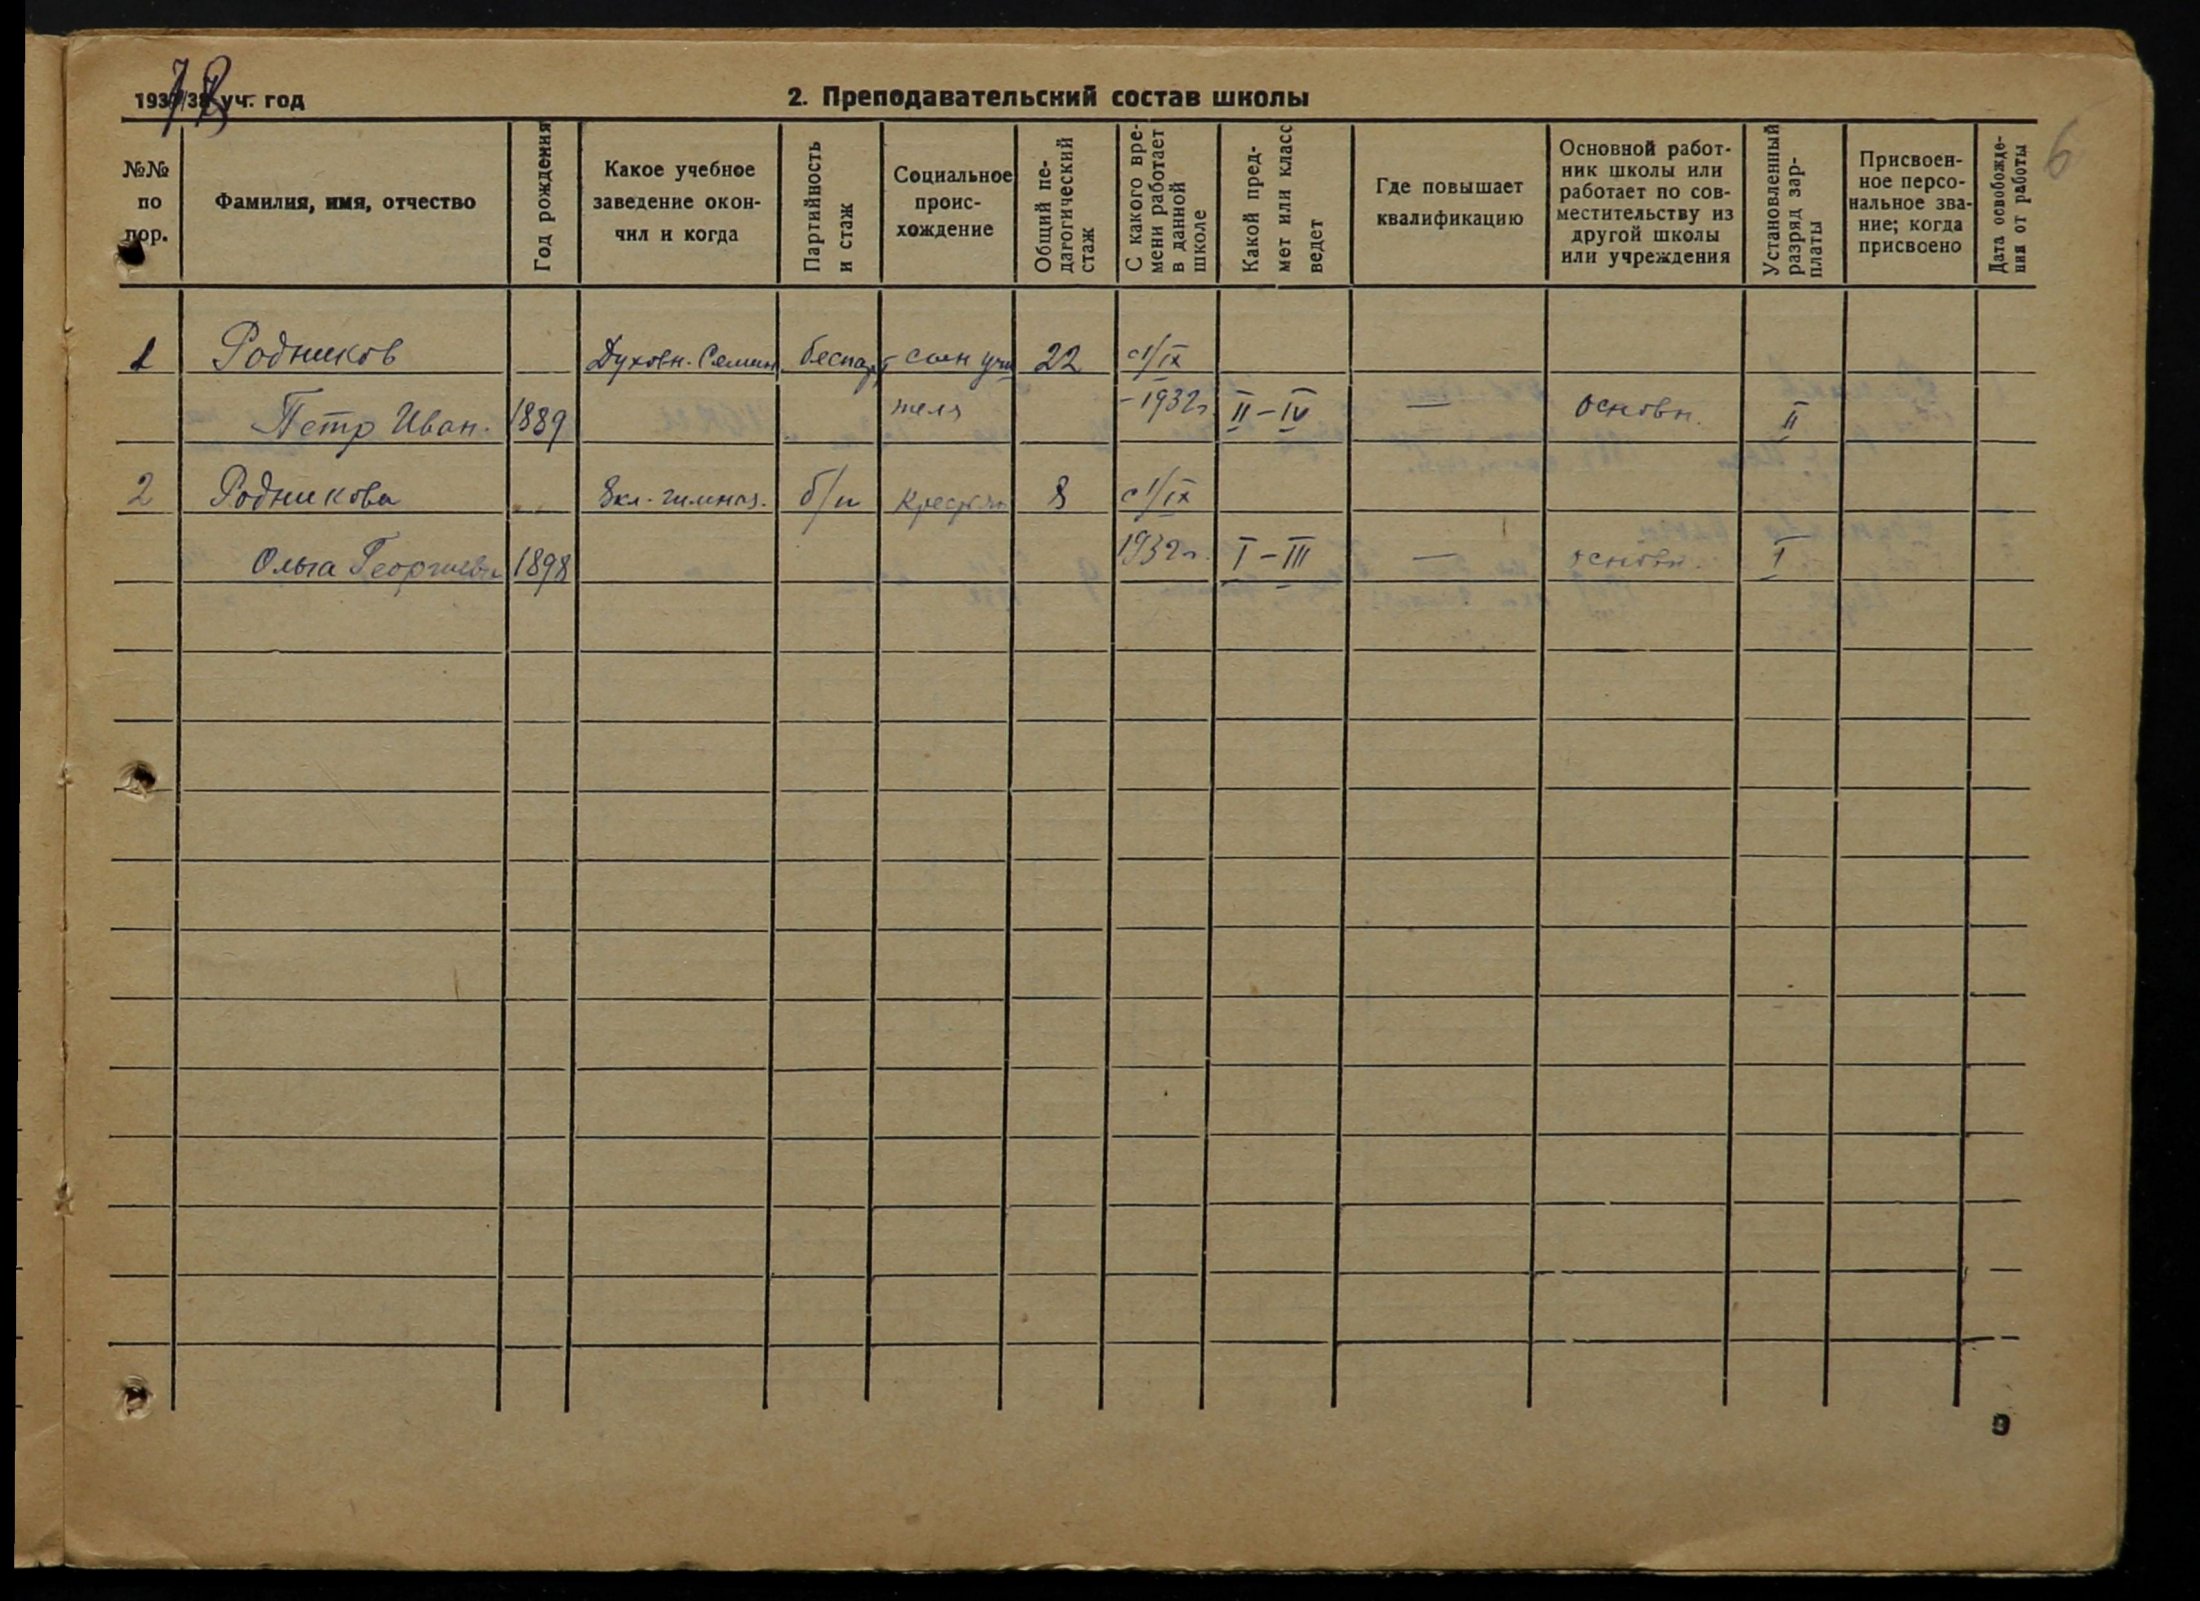 1937/38 уч. год
2. Преподавательский состав школы
6
№№ по пор.
Фамилия, имя, отчество
Год рождения
Какое учебное заведение окончил и когда
Партийность и стаж
Социальное происхождение
Общий педагогический стаж
С какого времени работает в данной школе
Какой предмет или класс ведет
Где повышает квалификацию
Основной работник школы или работает по совместительству из другой школы или учреждения
Установленный разряд зарплаты
Присвоенное персональное звание; когда присвоено
Дата освобождения от работы
1 Родников — Духовн. Семин беспарт сын учи 22 с 1/IX
Петр Иван. 1889 теля -1932г II-IV — основн. II
2 Родникова 8кл. гимназ. б/п крестьян 8 с 1/IX
Ольга Георгиевн 1898 1932г. I-III — основн. I
9